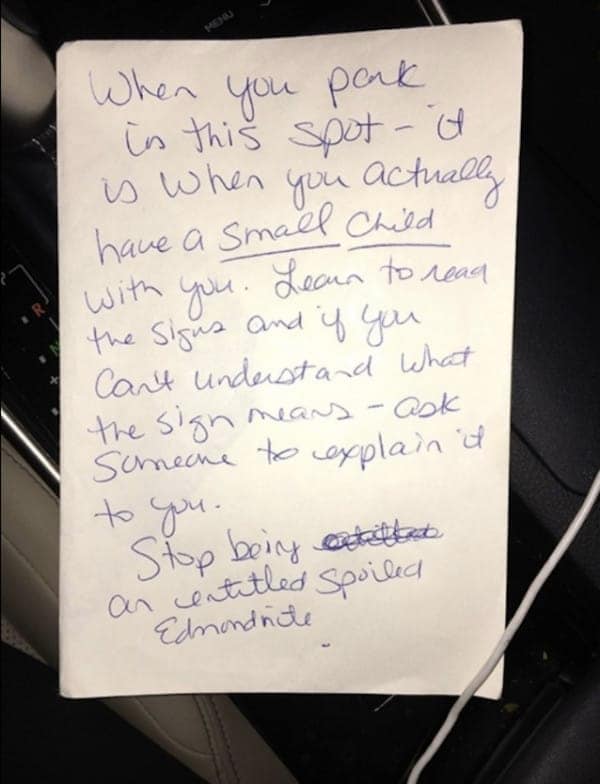 MENU
When you park
in this spot - it
is when you actually
have a small child
with you. Learn to read
the signs and if you
can't understand what
the sign means - ask
someone to explain it
to you.
Stop being
an entitled spoiled
Edmondite
R
N
+